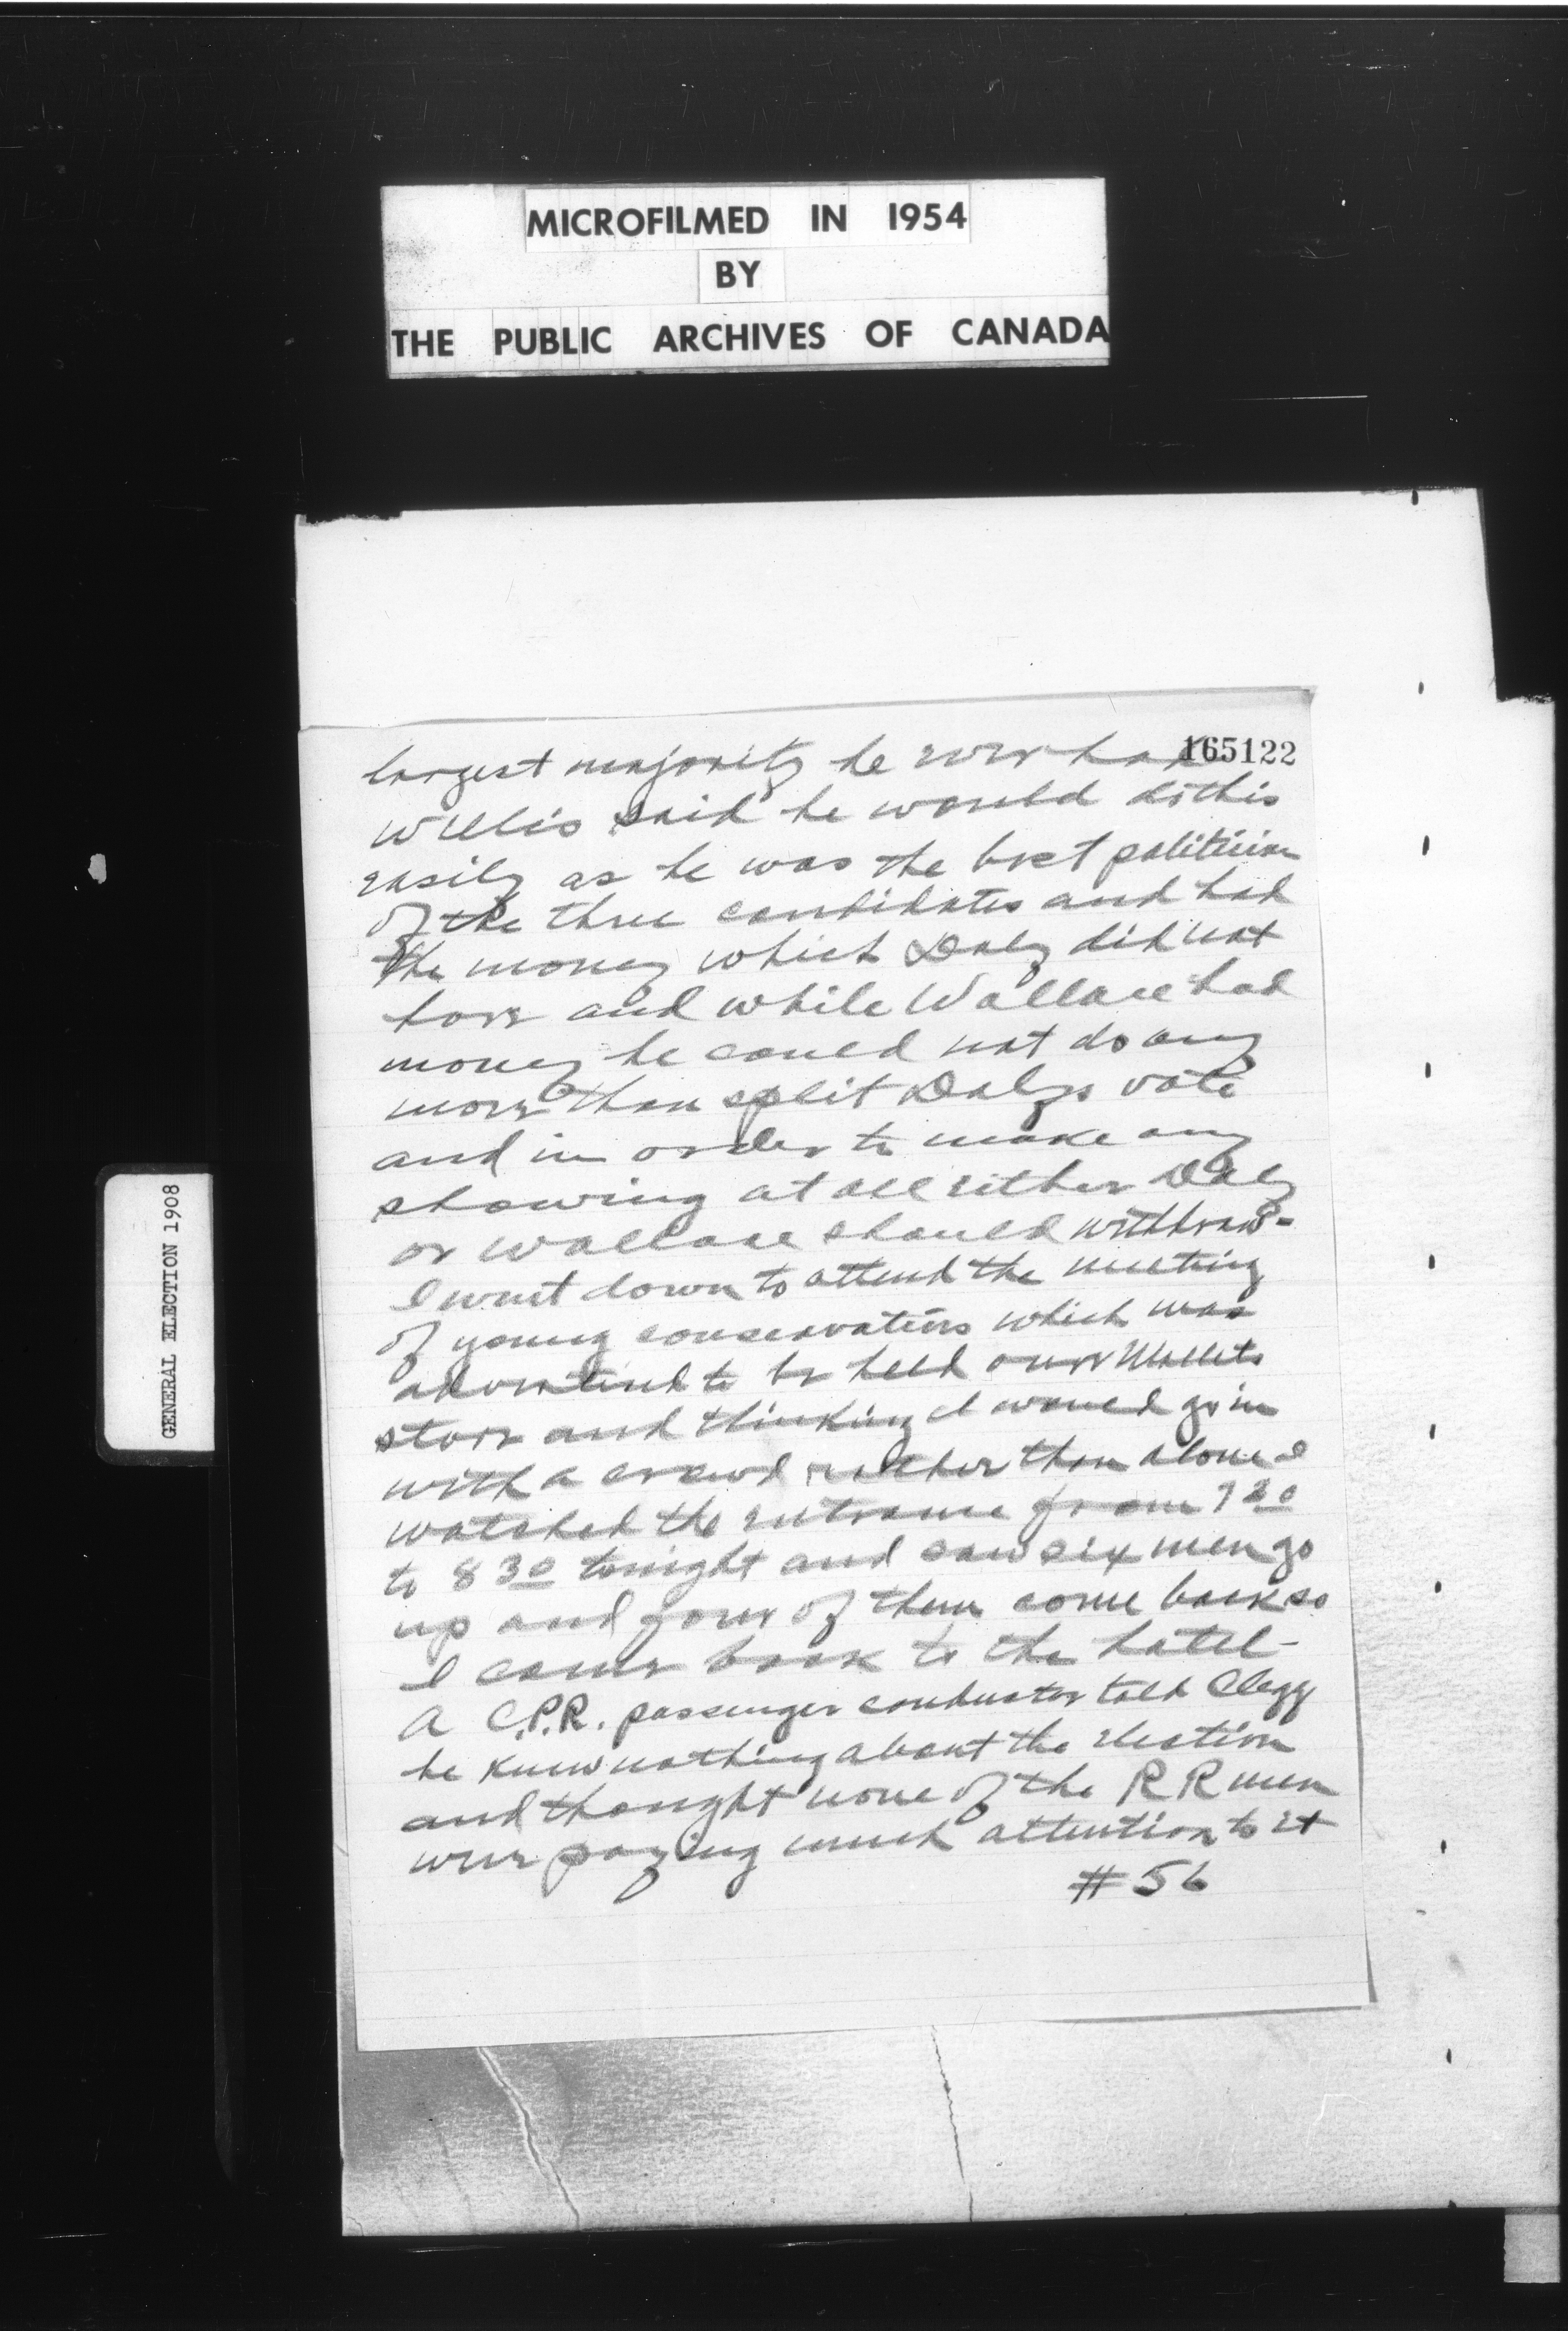 MICROFILMED IN 1954
BY
THE PUBLIC ARCHIVES OF CANADA
GENERAL ELECTION 1908
165122
largest majority he ever had
Willis said he would do this
easily as he was the best politician
of the three candidates and had
the money which Daly did not
have and while Wallace had
money he could not do any
more than split Dalys vote
and in order to make any
showing at all either Daly
or Wallace should withdraw-
I went down to attend the meeting
of young conservatives which was
advertised to be held over Mallets
store and thinking I would go in
with a crowd rather than alone I
watched the entrance from 7 30
to 8 30 tonight and saw six men go
up and four of them come back so
I came back to the hotel-
A C.P.R. passenger conductor told Clegg
he knew nothing about the election
and thought none of the R R men
were paying much attention to it
# 56